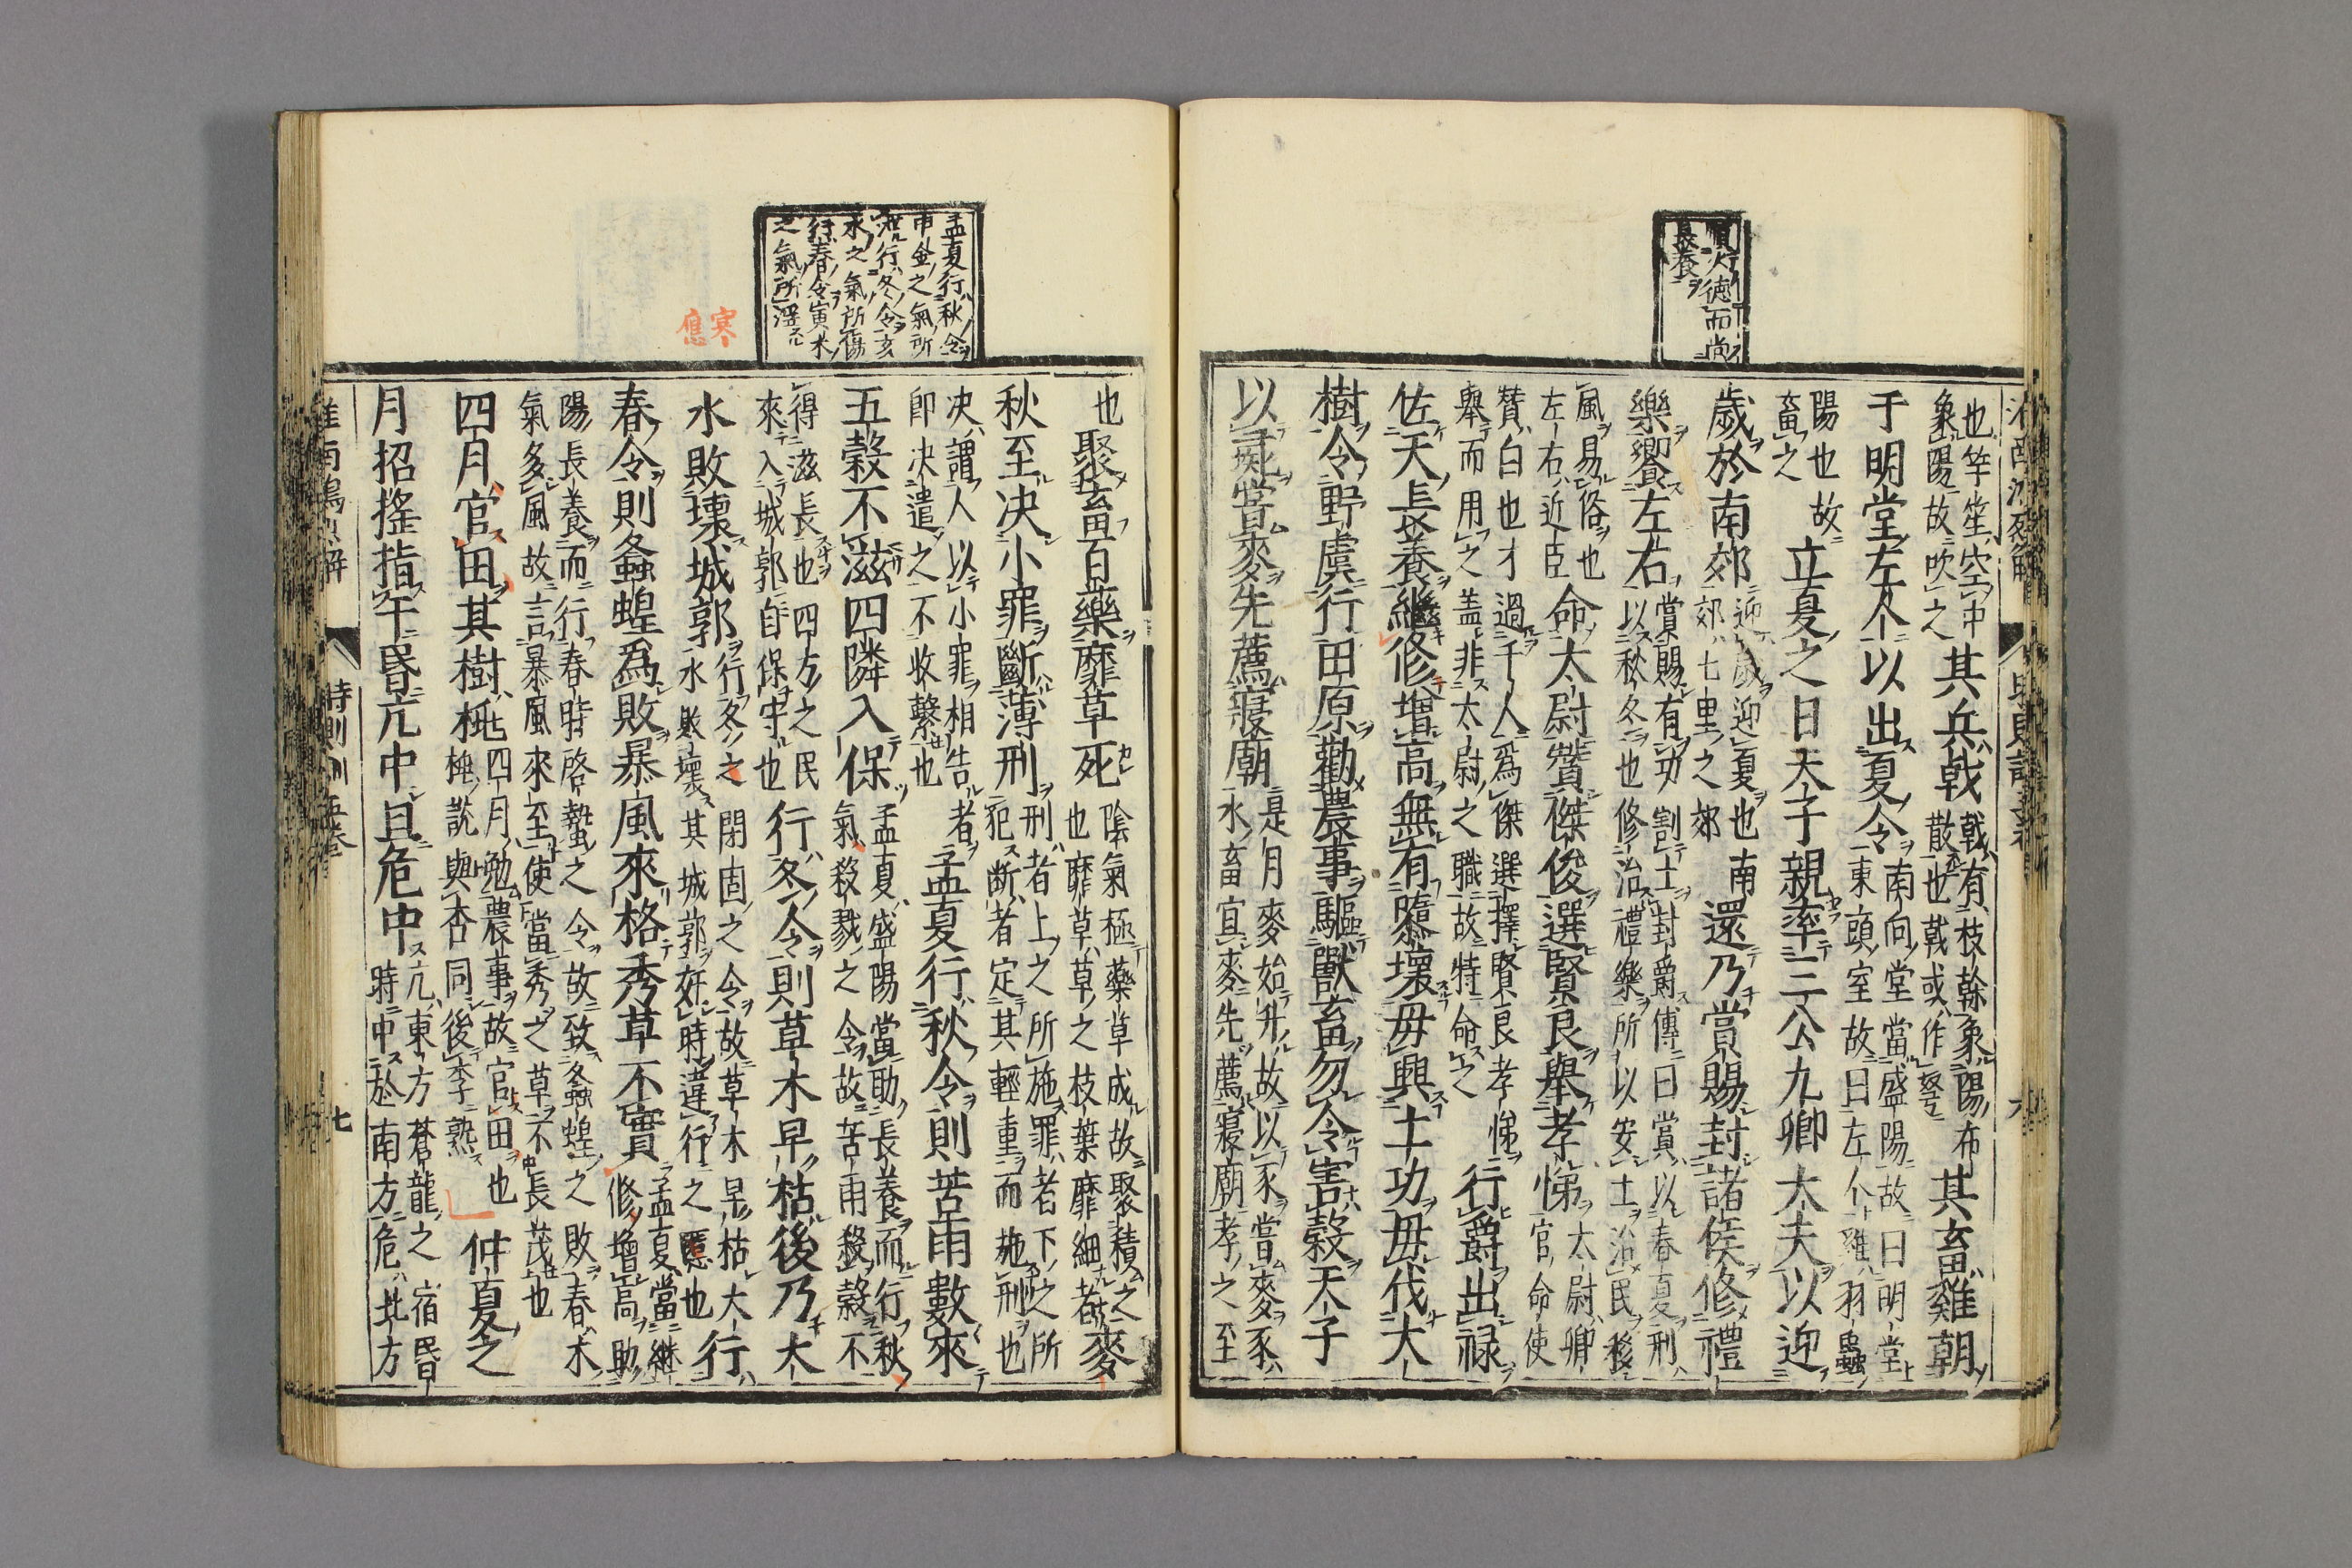 順火德而尚
長養
也竽笙空中象陽故吹之其兵戟戟有枝榦象陽布散也戟或作弩其畜雞朝
于明堂左个以出夏令南向堂當盛陽故曰明堂東頭室故曰左个雞羽蟲
陽也故畜之立夏之日天子親率三公九卿大夫以迎
歲於南郊迎歲迎夏也南郊七里之郊還乃賞賜封諸侯修禮
樂饗左右賞賜有功割土封爵傳曰賞以春夏刑以秋冬也修治禮樂所以安土治民移
風易俗也左右近臣命太尉贊傑俊選賢良舉孝悌太尉卿官命使
贊白也才過千人爲傑選擇賢良孝悌舉而用之盖非太尉之職故特命之行爵出禄
佐天長養繼修增高無有隳壞毋興土功毋伐大
樹令野虞行田原勸農事驅獸畜勿令害穀天子
以彘嘗麥先薦寢廟是月麥始升故以豕嘗麥豕水畜宜麥先薦寢廟孝之至
孟夏行秋令
申金之氣所
泄行冬令亥
水之氣所傷
行春令寅木
之氣所淫
寒
應
也聚畜百藥靡草死陰氣極藥草成故聚積之也靡草草之枝葉靡細者麥
秋至決小罪斷薄刑刑者上之所施罪者下之所犯断者定其輕重而施刑也
决謂人以小罪相告者即决遣之不收繫也孟夏行秋令則苦雨數來
五穀不滋四隣入保孟夏盛陽當助長養而行秋氣殺戮之令故苦雨殺穀不
得滋長也四方之民來入城郭自保守也行冬令則草木早枯後乃大
水敗壞城郭行冬之閉固之令故草木早枯大水敗壞其城郭奸時違行之慝也行
春令則螽蝗爲敗暴風來格秀草不實孟夏當継修增高助
陽長養而行春時啓蟄之令故致螽蝗之敗春木氣多風故言暴風來至使當秀之草不長茂也
四月官田其樹桃四月勉農事故官田也桃説與杏同後李熟仲夏之
月招搖指午昏亢中旦危中亢東方蒼龍之宿昏時中於南方危北方
淮南鴻烈解 時則訓五卷 七